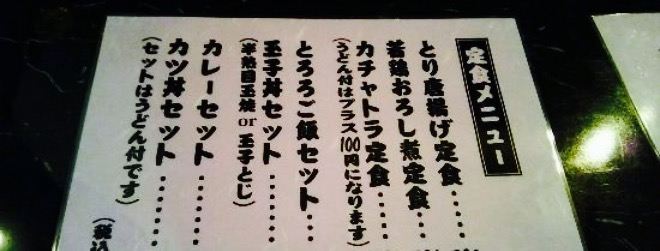 定食メニュー
とり唐揚げ定食・・・・
若鶏おろし煮定食・・・
カチャトラ定食・・・・
(うどん付はプラス100円になります)
とろろご飯セット・・・
玉子丼セット・・・・・
(半熟目玉焼 or 玉子とじ)
カレーセット・・・・・・
カツ丼セット・・・・・・
(セットはうどん付です)
(税込